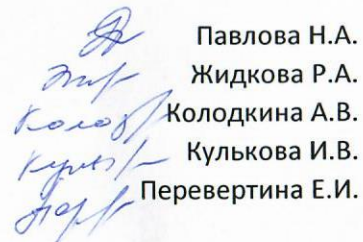 Павлова Н.А.
Жидкова Р.А.
Колодкина А.В.
Кулькова И.В.
Перевертина Е.И.